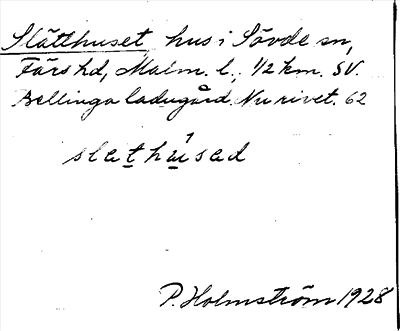 Slätthuset, hus i Sövde sn,
Färs hd, Malm. l., 1/2 km. SV.
Bellinga ladugård. Nu rivet. 62
slathusad
P. Holmström 1928